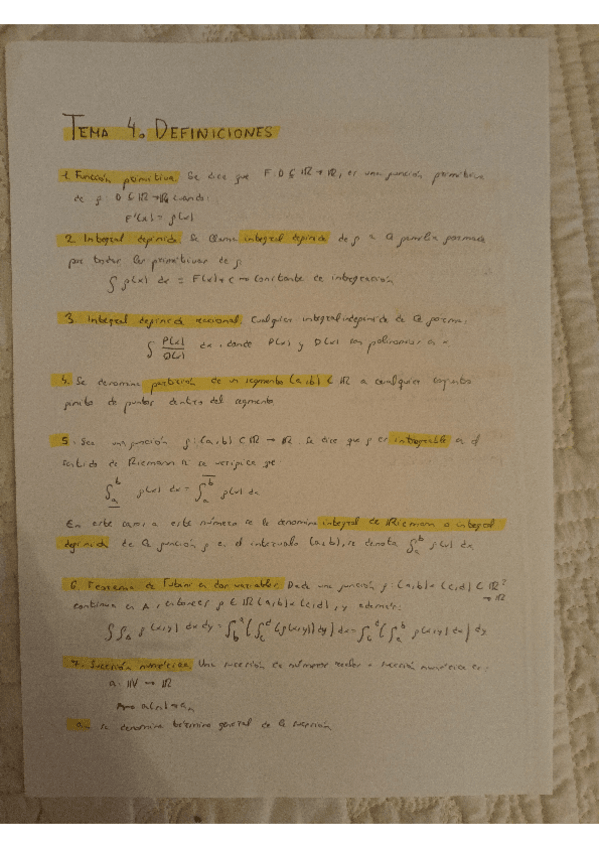 TEMA 4. DEFINICIONES
1. Función primitiva. Se dice que F: D ⊆ ℝ → ℝ, es una función primitiva
de f: D ⊆ ℝ → ℝ, cuando:
F'(x) = f(x)
2. Integral definida. Se llama integral definida de f a la familia formada
por todas las primitivas de f.
∫ f(x) dx = F(x) + C → Constante de integración
3. Integral definida racional. Cualquier integral indefinida de la forma:
∫ P(x)/Q(x) dx, donde P(x) y Q(x) son polinomios en x.
4. Se denomina partición de un segmento (a,b) ⊂ ℝ a cualquier conjunto
finito de puntos dentro del segmento.
5. Sea una función f: (a,b) ⊂ ℝ → ℝ. Se dice que f es integrable en el
sentido de Riemann si se verifica que
∫ₐᵇ f(x) dx = ∫ₐᵇ f(x) dx
En este caso, a este número se le denomina integral de Riemann o integral
definida de la función f en el intervalo (a,b), se denota ∫ₐᵇ f(x) dx
6. Teorema de Fubini en dos variables. Dada una función f: (a,b)×(c,d) ⊂ ℝ² → ℝ
continua en A, entonces f ∈ ℝ(a,b)×(c,d), y además:
7. Sucesión numérica. Una sucesión de números reales o sucesión numérica es:
a: ℕ → ℝ
n → a(n) = aₙ
aₙ se denomina término general de la sucesión